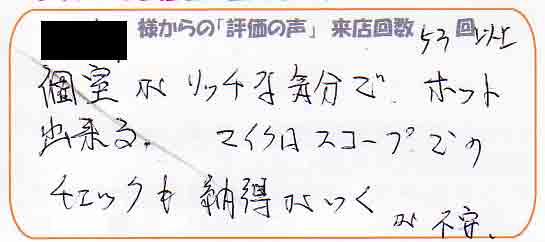 様からの「評価の声」 来店回数 53 回以上
個室がリッチな気分で、ホット
出来る。 マイクロスコープでの
チェックも納得がいく
が不安、